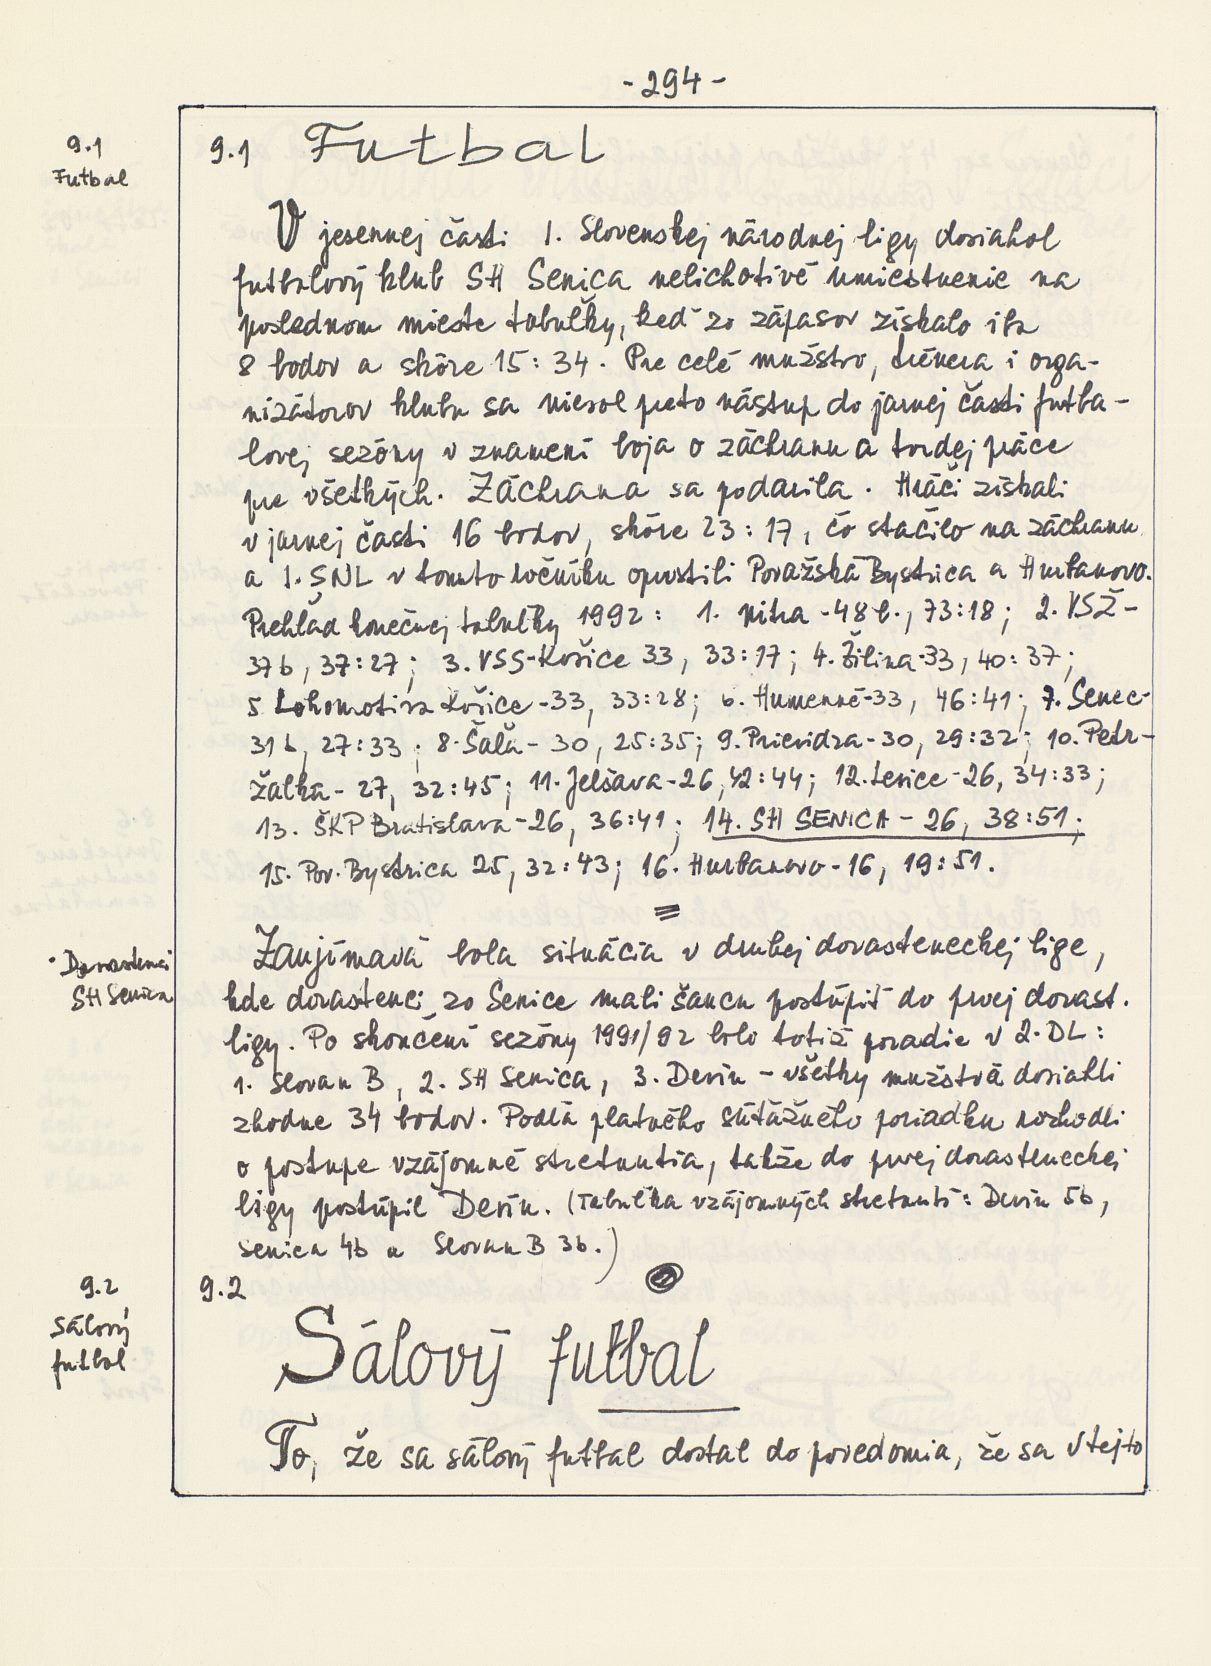 - 294 -
9.1
Futbal
9.1 Futbal
V jesennej časti 1. Slovenskej národnej ligy dosiahol
futbalový klub SH Senica nelichotivé umiestnenie na
poslednom mieste tabuľky, keď zo zápasov získalo iba
8 bodov a skóre 15:34. Pre celé mužstvo, trénera i orga-
nizátorov klubu sa niesol preto nástup do jarnej časti futba-
lovej sezóny v znamení boja o záchranu a tvrdej práce
pre všetkých. Záchrana sa podarila. Hráči získali
v jarnej časti 16 bodov, skóre 23:17, čo stačilo na záchranu
a 1. SNL v tomto ročníku opustili Považská Bystrica a Hurbanovo.
Prehľad konečnej tabuľky 1992: 1. Nitra - 48 b., 73:18; 2. VSŽ -
37 b, 37:27; 3. VSS-Košice 33, 33:17; 4. Žilina-33, 40:37;
5 Lokomotíva Košice - 33, 33:28; 6. Humenné-33, 46:41; 7. Senec-
31 b, 27:33; 8. Šaľa - 30, 25:35; 9. Prievidza - 30, 29:32; 10. Petr-
žalka - 27, 32:45; 11. Jelšava - 26, 42:44; 12. Levice - 26, 34:33;
13. ŠKP Bratislava - 26, 36:41; 14. SH SENICA - 26, 38:51;
15. Pov. Bystrica 25, 32:43; 16. Hurbanovo - 16, 19:51.
Dorastenci
SH Senica
Zaujímavá bola situácia v druhej dorasteneckej lige,
kde dorastenci zo Senice mali šancu postúpiť do prvej dorast.
ligy. Po skončení sezóny 1991/92 bolo totiž poradie v 2. DL:
1. Slovan B, 2. SH Senica, 3. Devín - všetky mužstvá dosiahli
zhodne 34 bodov. Podľa platného súťažného poriadku rozhodli
o postupe vzájomné stretnutia, takže do prvej dorasteneckej
ligy postúpil Devín. (Tabuľka vzájomných stretnutí: Devín 5b,
Senica 4b a Slovan B 3b.)
9.2
Sálový
futbal
9.2
Sálový futbal
To, že sa sálový futbal dostal do povedomia, že sa v tejto